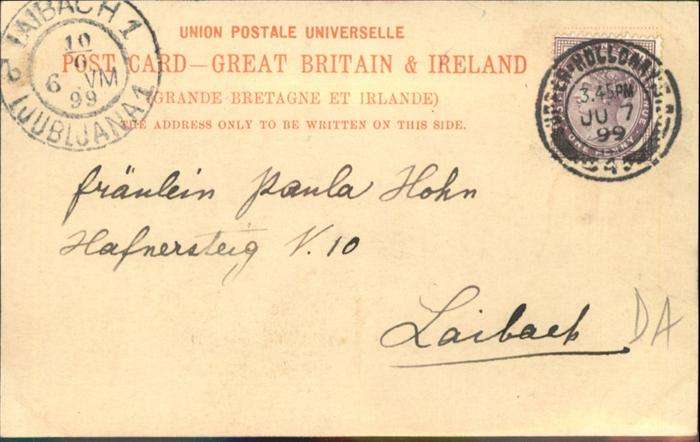 LAIBACH 1
10
6 VM
99
LJUBLJANA 1
UNION POSTALE UNIVERSELLE
POST CARD—GREAT BRITAIN & IRELAND
(GRANDE BRETAGNE ET IRLANDE)
THE ADDRESS ONLY TO BE WRITTEN ON THIS SIDE.
UPPER HOLLOWAY
3.45PM
JU 7
99
Fräulein Paula Hohn
Hafnersteig N. 10
Laibach
DA